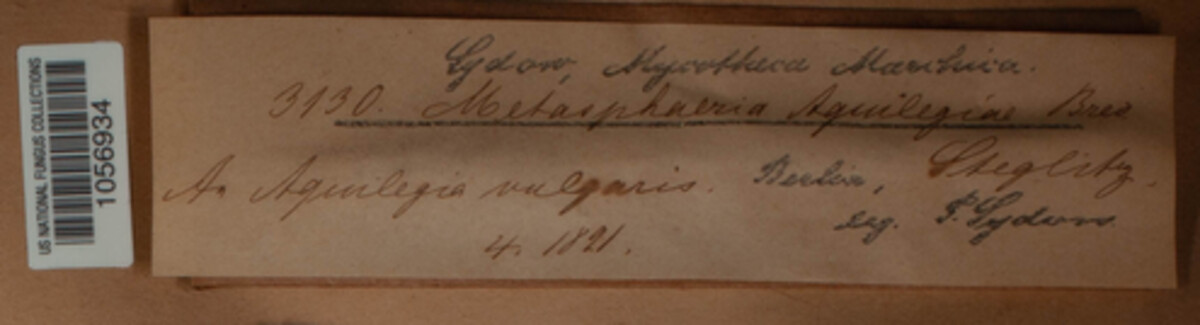 US NATIONAL FUNGUS COLLECTIONS
1056934
Sydow, Mycotheca Marchica.
3130. Metasphaeria Aquilegiae Bres
An Aquilegia vulgaris. Berlin, Steglitz.
4. 1891. leg. P. Sydow.